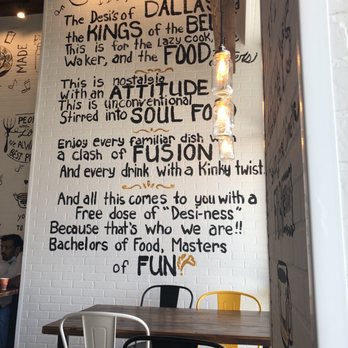 The Desi's of DALLAS
the KINGS of the BEL
This is for the lazy cook,
Waker, and the FOOD
This is nostalgia
With an ATTITUDE
This is unconventional
Stirred into SOUL FO
Enjoy every familiar dish
a clash of FUSION
And every drink with a Kinky twist
And all this comes to you with a
Free dose of "Desi-ness"
Because that's who we are!!
Bachelors of Food, Masters
of FUN
MADE